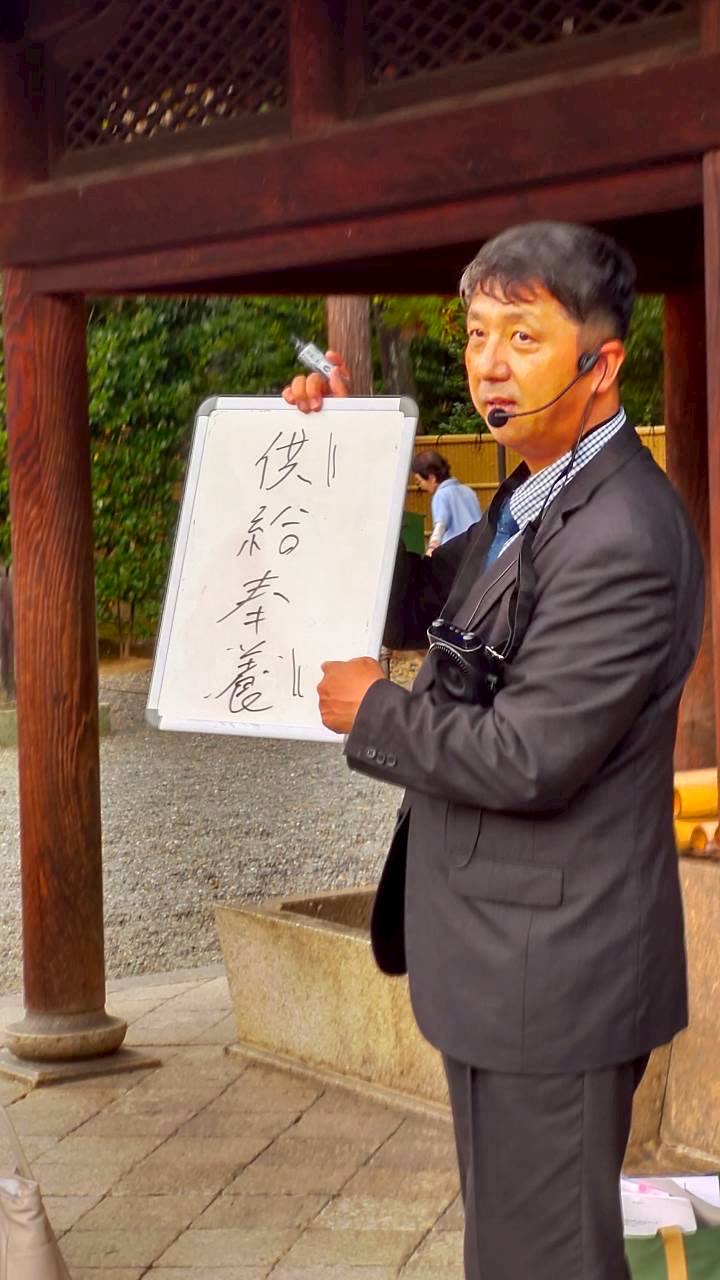 供給奉養